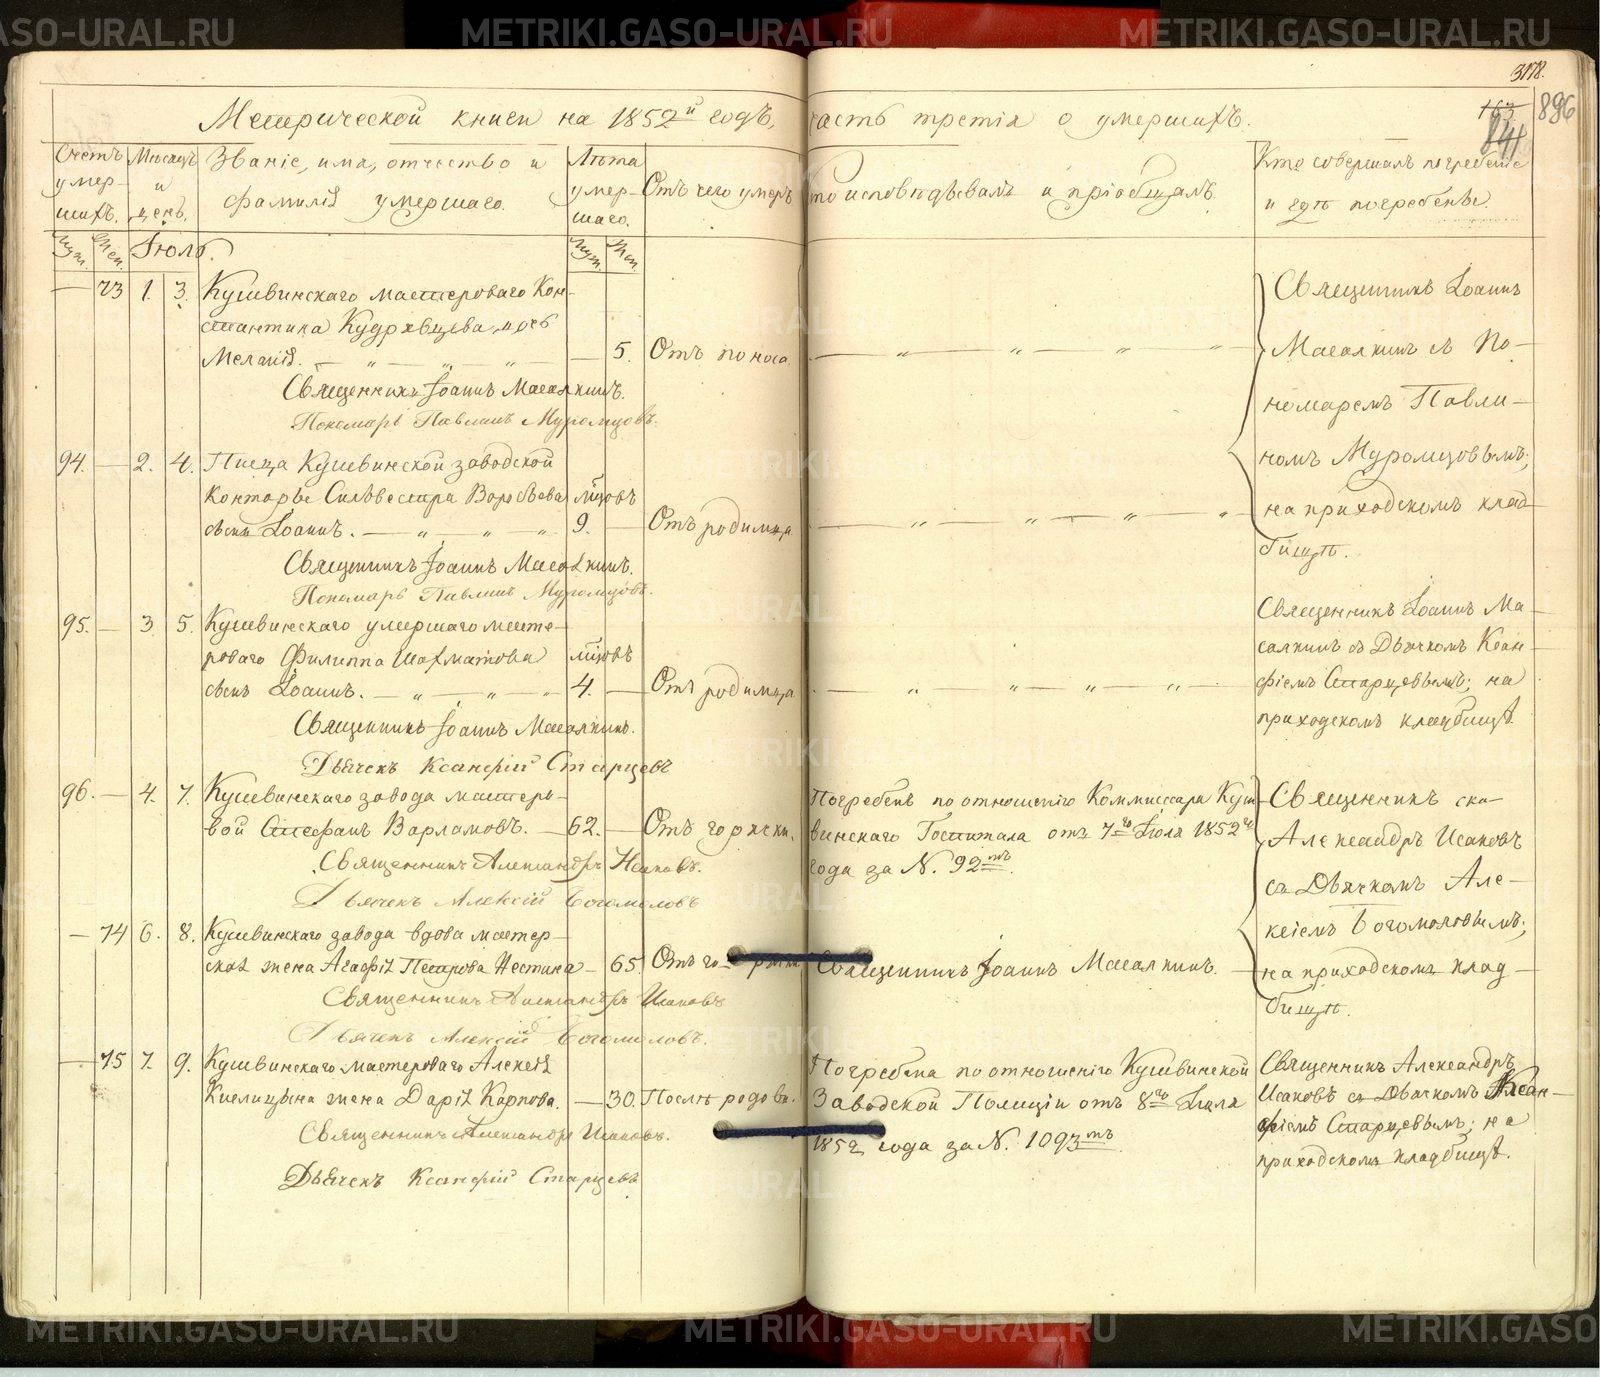 METRIKI.GASO-URAL.RU
3178.
Метрической книги на 1852й годъ, часть третія о умершихъ.
163
841
896
Счетъ умершихъ.
Мѣсяцъ и день.
Званіе, имя, отчество и фамилія умершаго.
Лѣта умершаго.
Отъ чего умеръ
Кто исповѣдывалъ и пріобщалъ.
Кто совершалъ погребеніе и гдѣ погребенъ.
Муж. Жен. Іюль. Муж. Жен.
73 1. 3. Кушвинскаго мастероваго Кон-
стантина Кудрявцева дочь
Меланія. 5. Отъ поноса
Священникъ Іоаннъ Масалкинъ.
Пономарь Павлинъ Муромцовъ.
Священникъ Іоаннъ
Масалкинъ съ По-
номаремъ Павли-
номъ Муромцовымъ;
на приходскомъ клад-
бищѣ.
94. 2. 4. Писца Кушвинской заводской
Конторы Сильвестра Воробьева мцовъ
сынъ Іоаннъ. 9. Отъ родимца
Священникъ Іоаннъ Масалкинъ.
Пономарь Павлинъ Муромцовъ.
95. 3. 5. Кушвинскаго умершаго масте-
роваго Филиппа Шахматова мцовъ
сынъ Іоаннъ. 4. Отъ родимца
Священникъ Іоаннъ Масалкинъ.
Дьячекъ Ксанфій Старцевъ
Священникъ Іоаннъ Ма-
салкинъ съ Дьячкомъ Ксан-
фіемъ Старцевымъ; на
приходскомъ кладбищѣ
96. 4. 7. Кушвинскаго завода мастеро-
вой Стефанъ Варламовъ. 62. Отъ горячки.
Священникъ Александръ Исаковъ.
Дьячекъ Алексій Богомоловъ
Погребенъ по отношенію Коммиссара Куш-
винскаго Госпиталя отъ 7го Іюля 1852
года за N. 92мъ.
Священникъ
Александръ Исаковъ
съ Дьячкомъ Але-
ксіемъ Богомоловымъ;
на приходскомъ клад-
бищѣ.
74 6. 8. Кушвинскаго завода вдова мастер-
ская жена Агафія Петрова 65 Отъ го-рячки Священникъ Іоаннъ Масалкинъ.
Священникъ Александръ Исаковъ
Дьячекъ Алексій Богомоловъ.
75 7. 9. Кушвинскаго мастероваго Алексія
Кислицына жена Дарія Карпова. 30. Послѣ родовъ.
Священникъ Александръ Исаковъ.
Дьячекъ Ксанфій Старцевъ
Погребена по отношенію Кушвинской
Заводской Полиціи отъ 8го Іюля
1852 года за N. 1093мъ
Священникъ Александръ
Исаковъ съ Дьячкомъ Ксан-
фіемъ Старцевымъ; на
приходскомъ кладбищѣ.